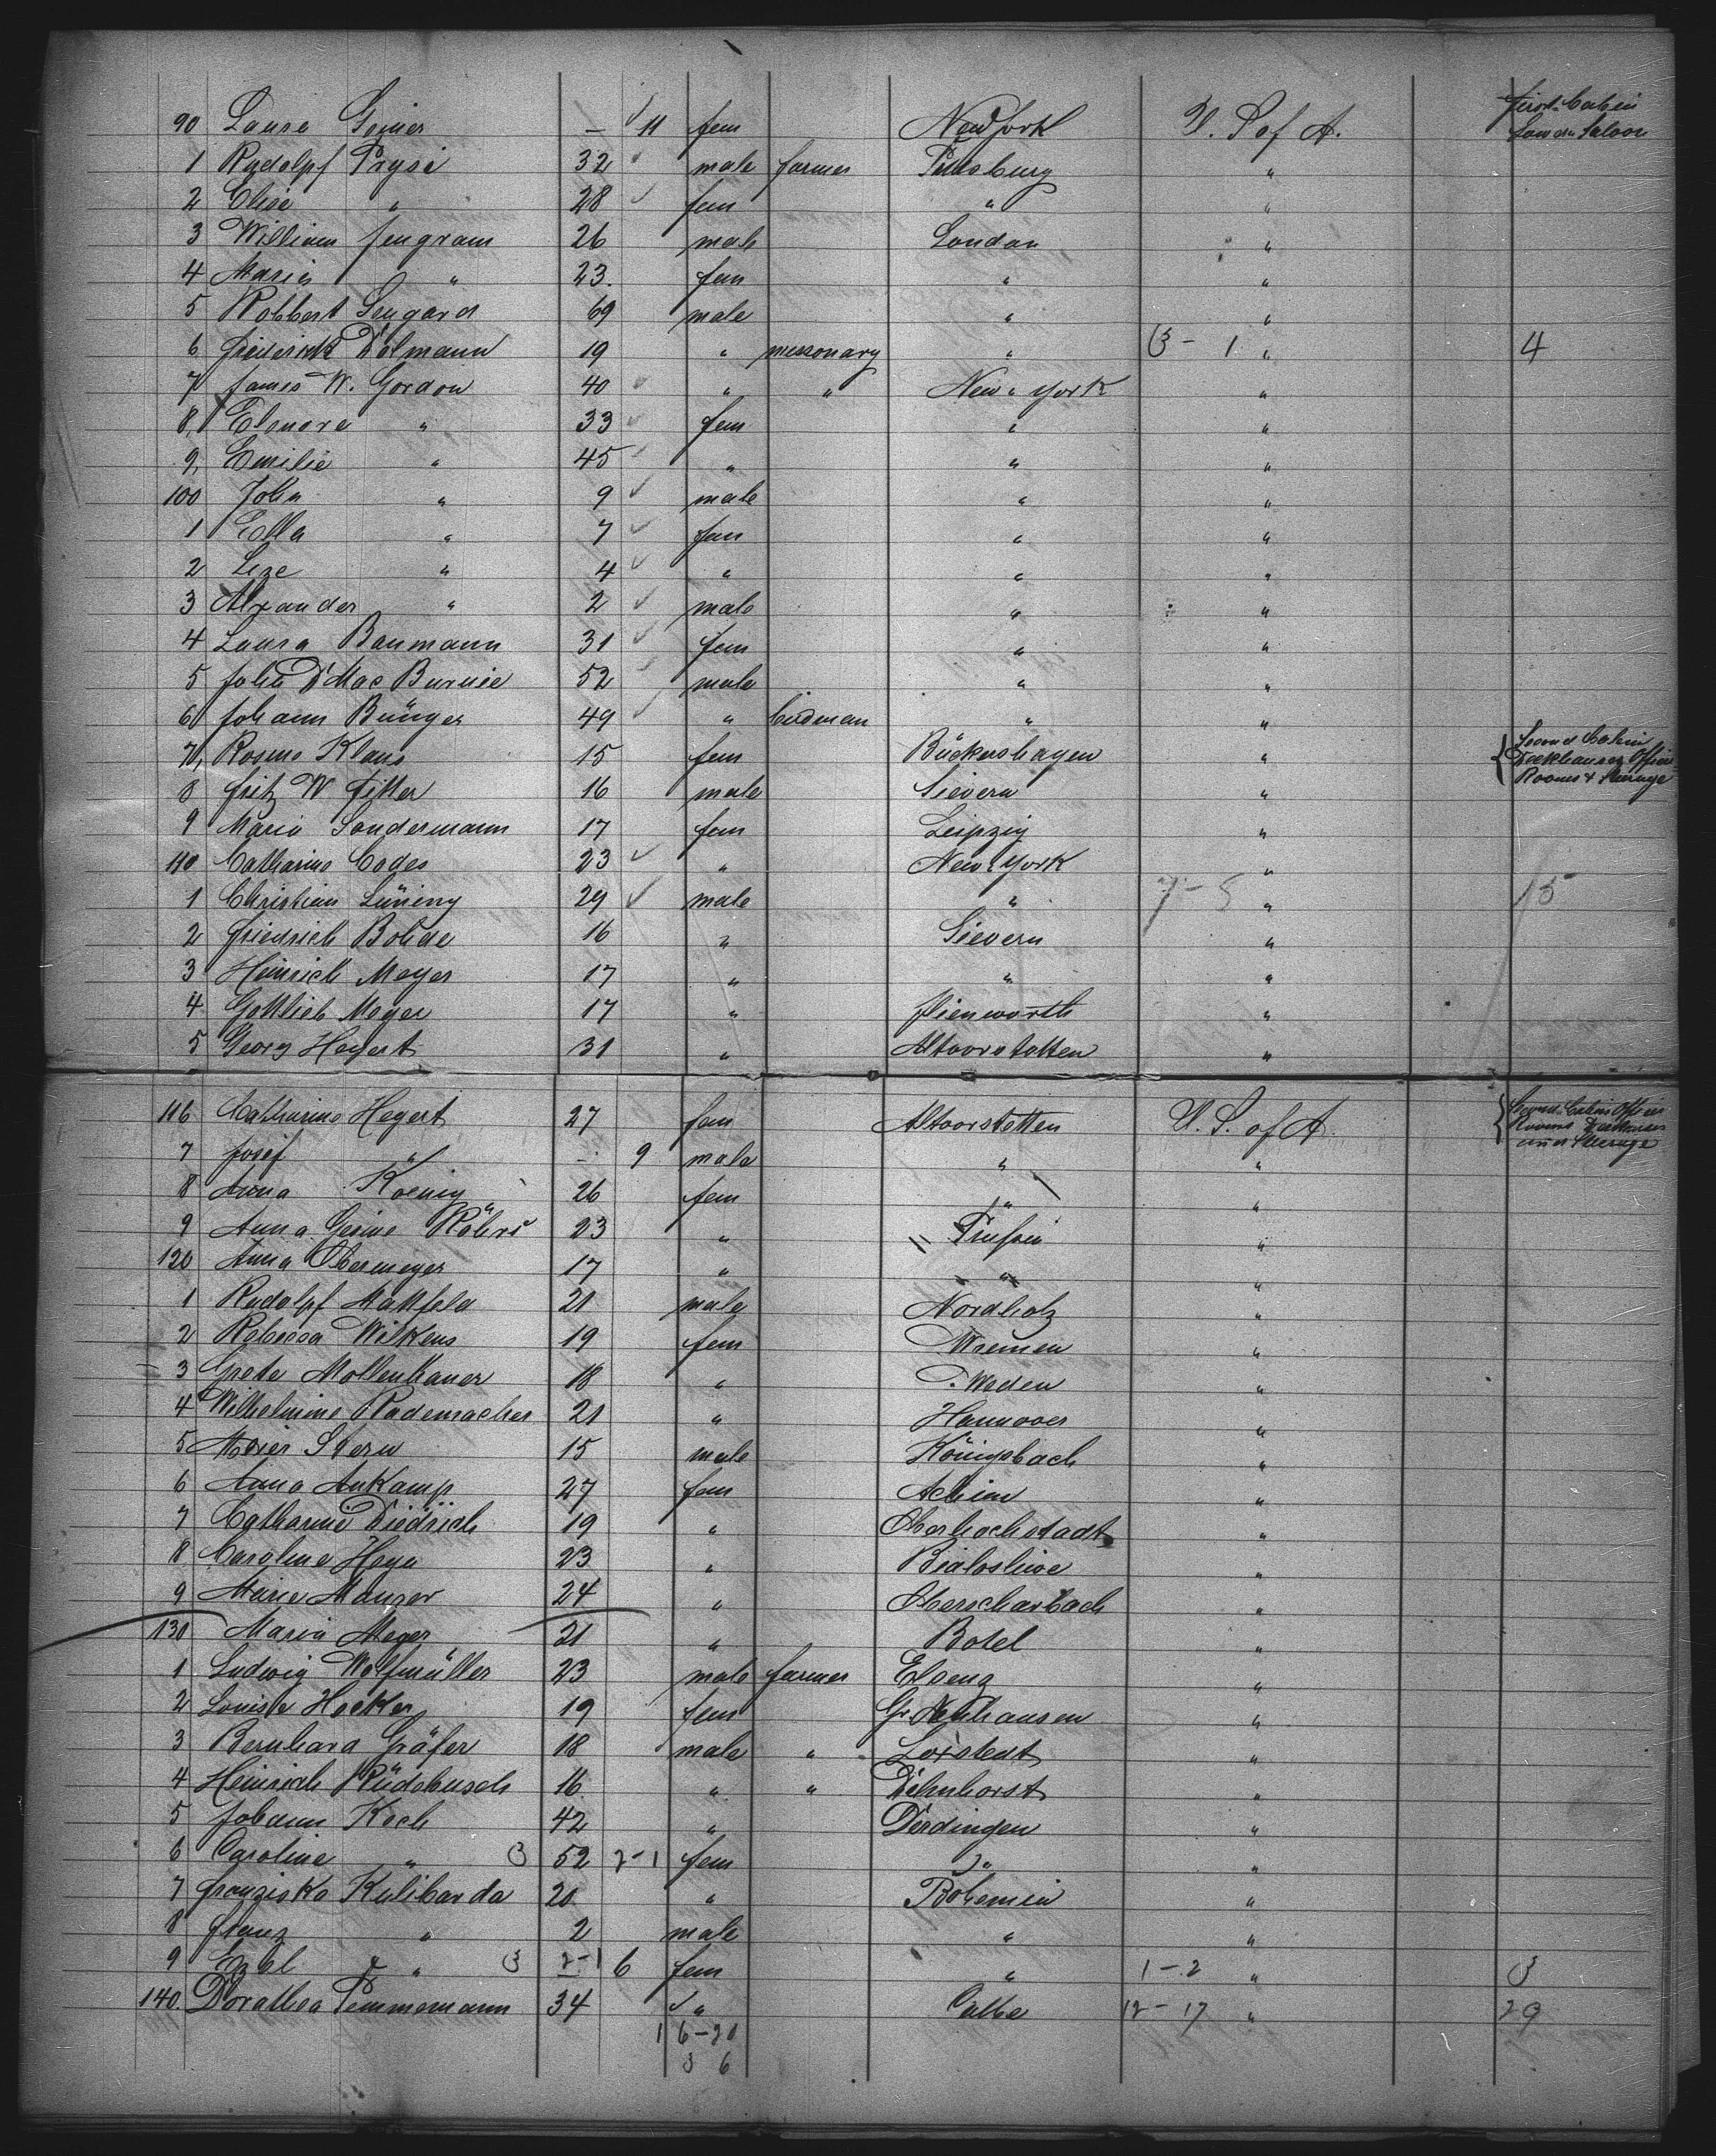 90 Laura Geiner — 11 fem New York U. S of A. first Cabin
1 Rudolpf Prysi 32 male farmer "
2 Elise " 28 fem " "
3 William 26 male London "
4 Maria " 23. fem " "
5 Robbert 69 male " "
6 Friederick Dolmann 19 " messonary " 3 - 1 " 4
7 James W. Gordon 40 " " New-York "
8, Elonore " 33 fem " "
9, Emilie " 45 " " "
100 John " 9 male " "
1 Ella " 7 fem " "
2 Leze " 4 " " "
3 Alxander " 2 male " "
4 Laura Baumann 31 fem " "
5 John D' Mac Burnie 52 male " "
6 Johann Bünger 49 " " "
7, Rosine Klaus 15 fem Bückershagen " Second Cabin
Deckhouses Officer
Rooms & Steerage
8 Fritz W Fitter 16 male Sievern "
9 Maria Sondermann 17 fem Leipzig "
110 Catharine Codes 23 " New-York "
1 Christian Lüning 29 male " 7 - 5 " 15
2 Friedrich Bohde 16 " Sievern "
3 Heinrich Meyer 17 " " "
4 Gottlieb Meyer 17 " "
5 Georg Hegert 31 " "
116 Catharine Hegert 27 fem Altvorstetten U. S. of A. Second Cabin Officer
Rooms Deckhouses
and Steerage
7 Josef " — 9 male " "
8 Anna Koenig 26 fem " "
9 Anna Gesine Röhrs 23 " "
120 Anna Obermeyer 17 " " "
1 Rudolpf Mattfeld 21 male Nordholz "
2 Rebecca Wilkens 19 fem Wremen "
3 Grete Mollenhauer 18 " Weden "
4 Wilhelmine Rademacher 21 " Hannover "
5 Meier Stern 15 male Königsbach "
6 Anna Ankamp 27 fem Achim "
7 Catharine Diedrich 19 " Oberhochstadt "
8 Caroline Heyn 23 " Bialosliwe "
9 Marie Manger 24 " Oberscharbach "
130 Maria Meyer 21 " Botel "
1 Ludwig Wolfmüller 23 male farmer Elsenz "
2 Louise Hecker 19 fem Gr. Neuhausen "
3 Bernhard Gräfer 18 male " Loxstedt "
4 Heinrich Rüdebusch 16 " " Delmhorst "
5 Johann Koch 42 " Derdingen "
6 Caroline " 3 52 2-1 fem " "
7 Franziska Kulibarda 20 " Bohemia "
8 Franz " 2 male " "
9 " 3 2-1 6 fem " 1-2 " 3
140. Dorothea Temmemann 34 " Calbe 12-17 " 29
1 6-20
3 6